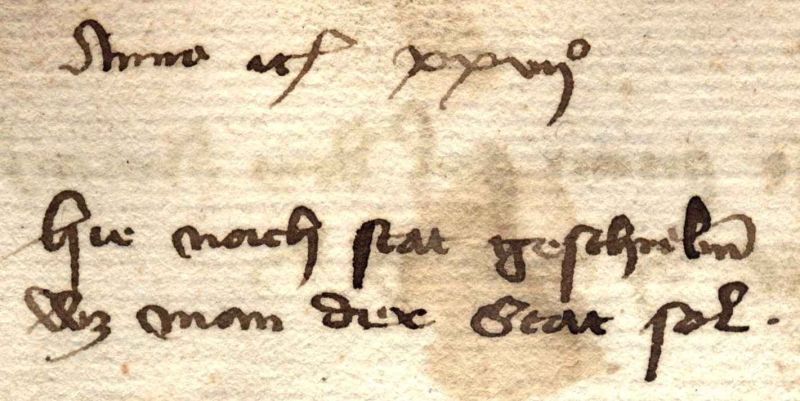 Anno etc xxvijo
hie noch stat geschriben
wz man der Stat sol.